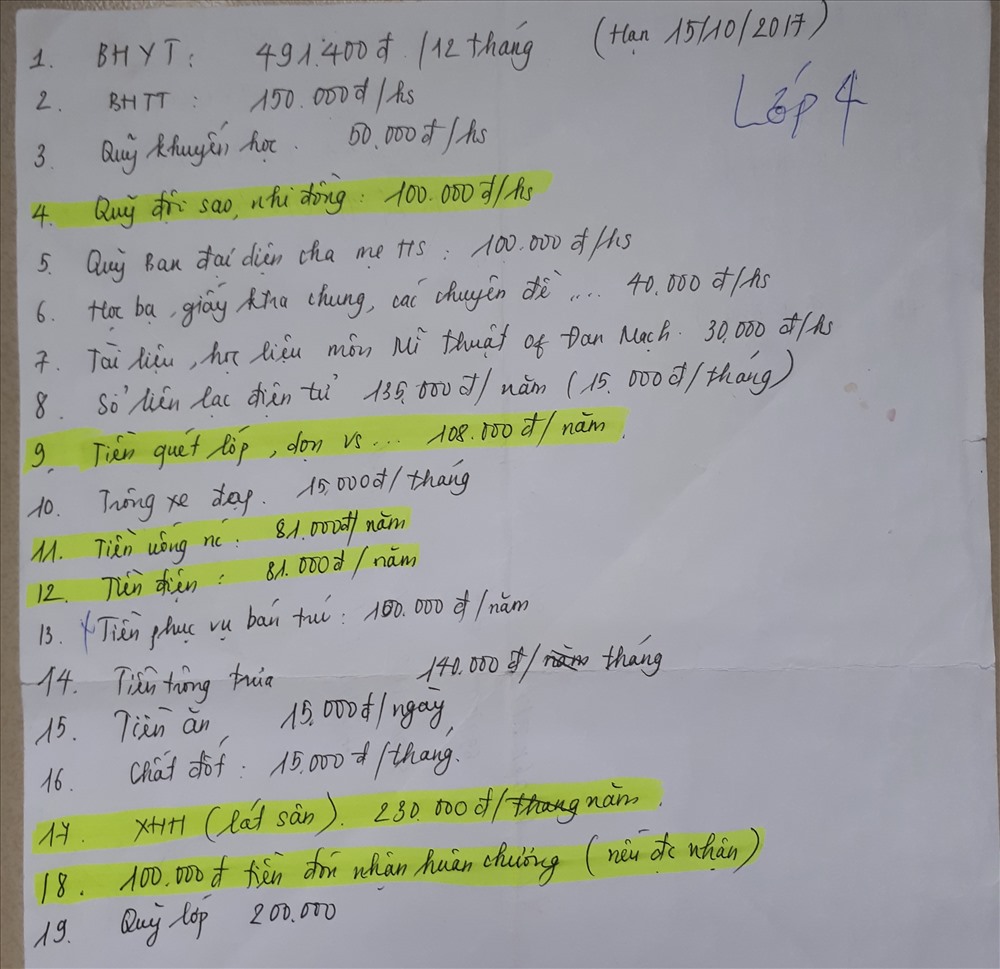 1. BHYT: 491.400đ /12 tháng (Hạn 15/10/2017)
2. BHTT: 150.000đ/hs
Lớp 4
3. Quỹ khuyến học. 50.000đ/hs
4. Quỹ đội sao, nhi đồng: 100.000 đ/hs
5. Quỹ Ban đại diện cha mẹ HS: 100.000 đ/hs
6. Học bạ, giấy ktra chung, các chuyên đề .... 40.000 đ/hs
7. Tài liệu, học liệu môn Mĩ thuật of Đan Mạch. 30,000 đ/hs
8. Sổ liên lạc điện tử 135,000đ/ năm (15,000đ/tháng)
9. Tiền quét lớp, dọn vs ... 108.000đ/năm.
10. Trông xe đạp. 15,000đ/tháng
11. Tiền uống nc: 81.000đ/ năm
12. Tiền điện: 81.000đ/ năm
13. x Tiền phục vụ bán trú: 100.000 đ/năm
14. Tiền trông trưa 140.000 đ/năm tháng
15. Tiền ăn 15,000đ/ngày
16. Chất đốt: 15.000 đ/tháng.
17. XHH (lát sân). 230.000đ/thang năm.
18. 100.000 đ tiền đón nhận huân chương (nếu đc nhận)
19. Quỹ lớp 200.000